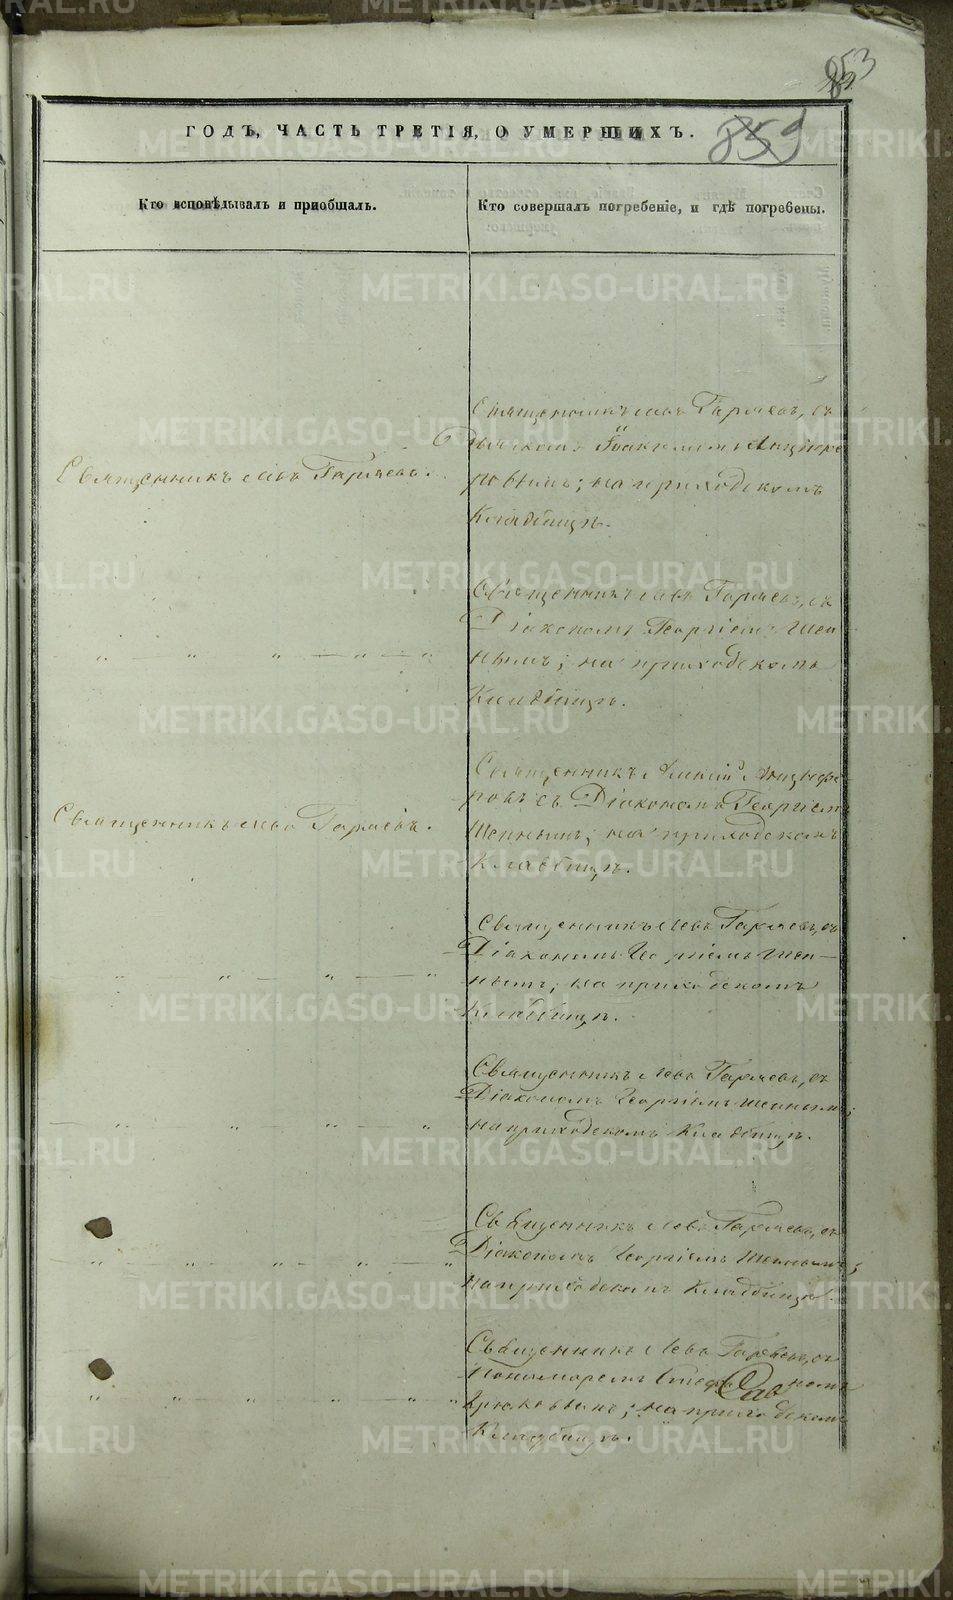 853
ГОДЪ, ЧАСТЬ ТРЕТІЯ, О УМЕРШИХЪ.
859
Кто исповѣдывалъ и пріобщалъ.
Кто совершалъ погребеніе, и гдѣ погребены.
Священникъ Левъ Гаряевъ.
Священникъ Левъ Гаряевъ, съ
на приходскомъ
Кладбищѣ.
" — " " — " — "
Священникъ Левъ Гаряевъ, съ
Діакономъ Георгіемъ
на приходскомъ
Кладбищѣ.
Священникъ Левъ Гаряевъ.
Священникъ
съ Діакономъ Георгіемъ
на приходскомъ
Кладбищѣ.
" " — " — "
Священникъ Левъ Гаряевъ, съ
Діакономъ Георгіемъ
на приходскомъ
Кладбищѣ.
" " " "
Священникъ Левъ Гаряевъ, съ
Діакономъ Георгіемъ
на приходскомъ Кладбищѣ.
" " " " "
Священникъ Левъ Гаряевъ, съ
Діакономъ Георгіемъ
на приходскомъ Кладбищѣ.
" " " " "
Священникъ Левъ Гаряевъ, съ
Пономаремъ
на приходскомъ
Кладбищѣ.
METRIKI.GASO-URAL.RU